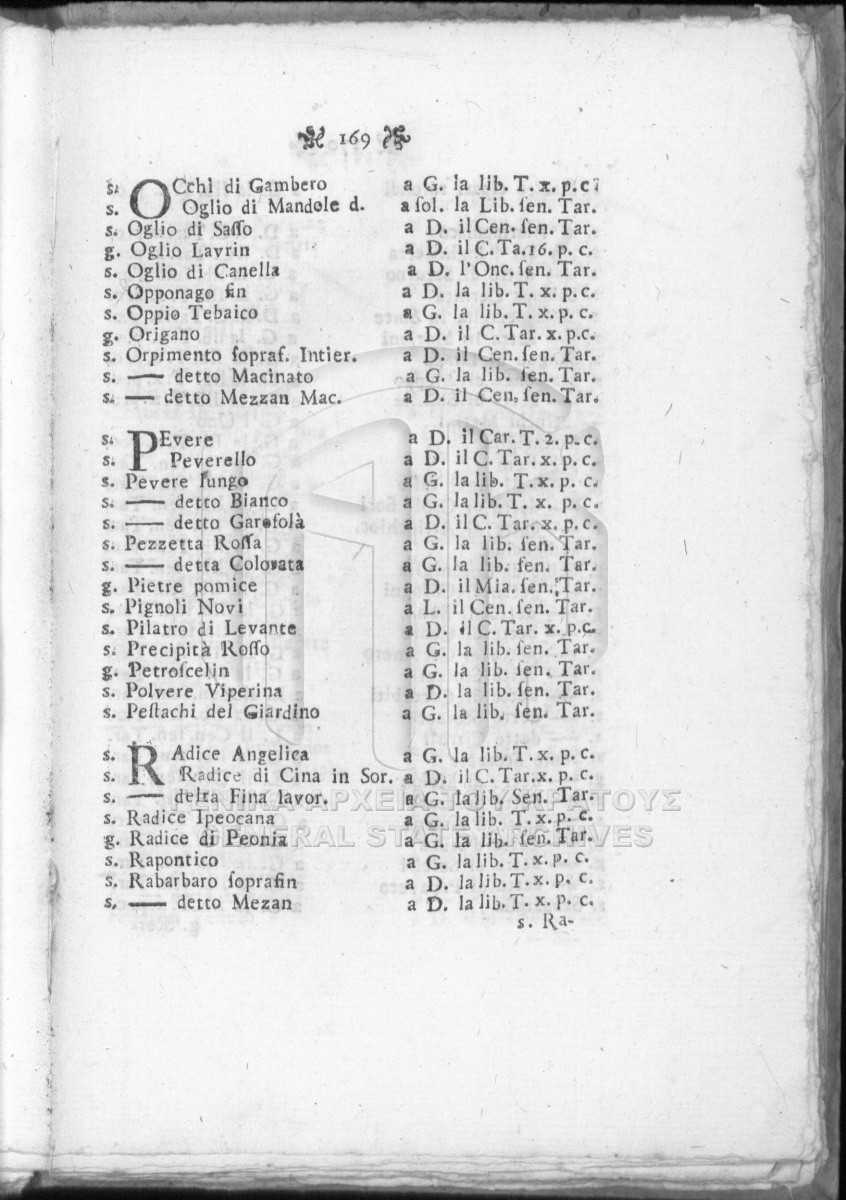 169
s. OCchi di Gambero a G. la lib. T. x. p. c.
s. Oglio di Mandole d. a sol. la Lib. sen. Tar.
s. Oglio di Sasso a D. il Cen. sen. Tar.
g. Oglio Lavrin a D. il C. Ta. 16. p. c.
s. Oglio di Canella a D. l'Onc. sen. Tar.
s. Opponago fin a D. la lib. T. x. p. c.
s. Oppio Tebaico a G. la lib. T. x. p. c.
g. Origano a D. il C. Tar. x. p.c.
s. Orpimento sopraf. Intier. a D. il Cen. sen. Tar.
s. — detto Macinato a G. la lib. sen. Tar.
s. — detto Mezzan Mac. a D. il Cen. sen. Tar.
s. PEvere a D. il Car. T. 2. p. c.
s. Peverello a D. il C. Tar. x. p. c.
s. Pevere lungo a G. la lib. T. x. p. c.
s. — detto Bianco a G. la lib. T. x. p. c.
s. — detto Garofolà a D. il C. Tar. x. p. c.
s. Pezzetta Rossa a G. la lib. sen. Tar.
s. — detta Colorata a G. la lib. sen. Tar.
g. Pietre pomice a D. il Mia. sen. Tar.
s. Pignoli Novi a L. il Cen. sen. Tar.
s. Pilatro di Levante a D. il C. Tar. x. p.c.
s. Precipità Rosso a G. la lib. sen. Tar.
g. Petroscelin a G. la lib. sen. Tar.
s. Polvere Viperina a D. la lib. sen. Tar.
s. Pestachi del Giardino a G. la lib. sen. Tar.
s. RAdice Angelica a G. la lib. T. x. p. c.
s. Radice di Cina in Sor. a D. il C. Tar. x. p. c.
s. — detta Fina lavor. a G. la lib. Sen. Tar.
s. Radice Ipeocana a G. la lib. T. x. p. c.
g. Radice di Peonia a G. la lib. sen. Tar.
s. Rapontico a G. la lib. T. x. p. c.
s. Rabarbaro soprafin a D. la lib. T. x. p. c.
s. — detto Mezan a D. la lib. T. x. p. c.
s. Ra-
ΓΕΝΙΚΑ ΑΡΧΕΙΑ ΤΟΥ ΚΡΑΤΟΥΣ
GENERAL STATE ARCHIVES